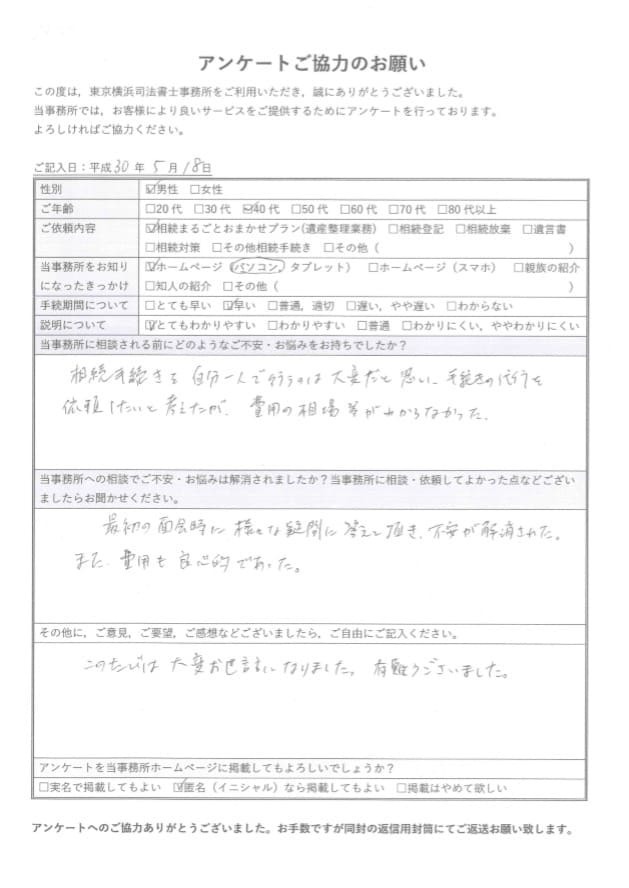 アンケートご協力のお願い
この度は，東京横浜司法書士事務所をご利用いただき，誠にありがとうございました。
当事務所では，お客様により良いサービスをご提供するためにアンケートを行っております。
よろしければご協力ください。
ご記入日：平成30年5月18日
性別 ☑男性 □女性
ご年齢 □20代 □30代 ☑40代 □50代 □60代 □70代 □80代以上
ご依頼内容 ☑相続まるごとおまかせプラン(遺産整理業務) □相続登記 □相続放棄 □遺言書
□相続対策 □その他相続手続き □その他（ ）
当事務所をお知り ☑ホームページ（パソコン，タブレット） □ホームページ（スマホ） □親族の紹介
になったきっかけ □知人の紹介 □その他（ ）
手続期間について □とても早い ☑早い □普通，適切 □遅い，やや遅い □わからない
説明について ☑とてもわかりやすい □わかりやすい □普通 □わかりにくい，ややわかりにくい
当事務所に相談される前にどのようなご不安・お悩みをお持ちでしたか？
相続手続きを自分一人で行うのは大変だと思い、手続きの代行を
依頼したいと考えたが、費用の相場等がわからなかった。
当事務所への相談でご不安・お悩みは解消されましたか？当事務所に相談・依頼してよかった点などござい
ましたらお聞かせください。
最初の面会時に様々な疑問に答えて頂き、不安が解消された。
また、費用も良心的であった。
その他に，ご意見，ご要望，ご感想などございましたら，ご自由にご記入ください。
このたびは大変お世話になりました。有難うございました。
アンケートを当事務所ホームページに掲載してもよろしいでしょうか？
□実名で掲載してもよい ☑匿名（イニシャル）なら掲載してもよい □掲載はやめて欲しい
アンケートへのご協力ありがとうございました。お手数ですが同封の返信用封筒にてご返送お願い致します。